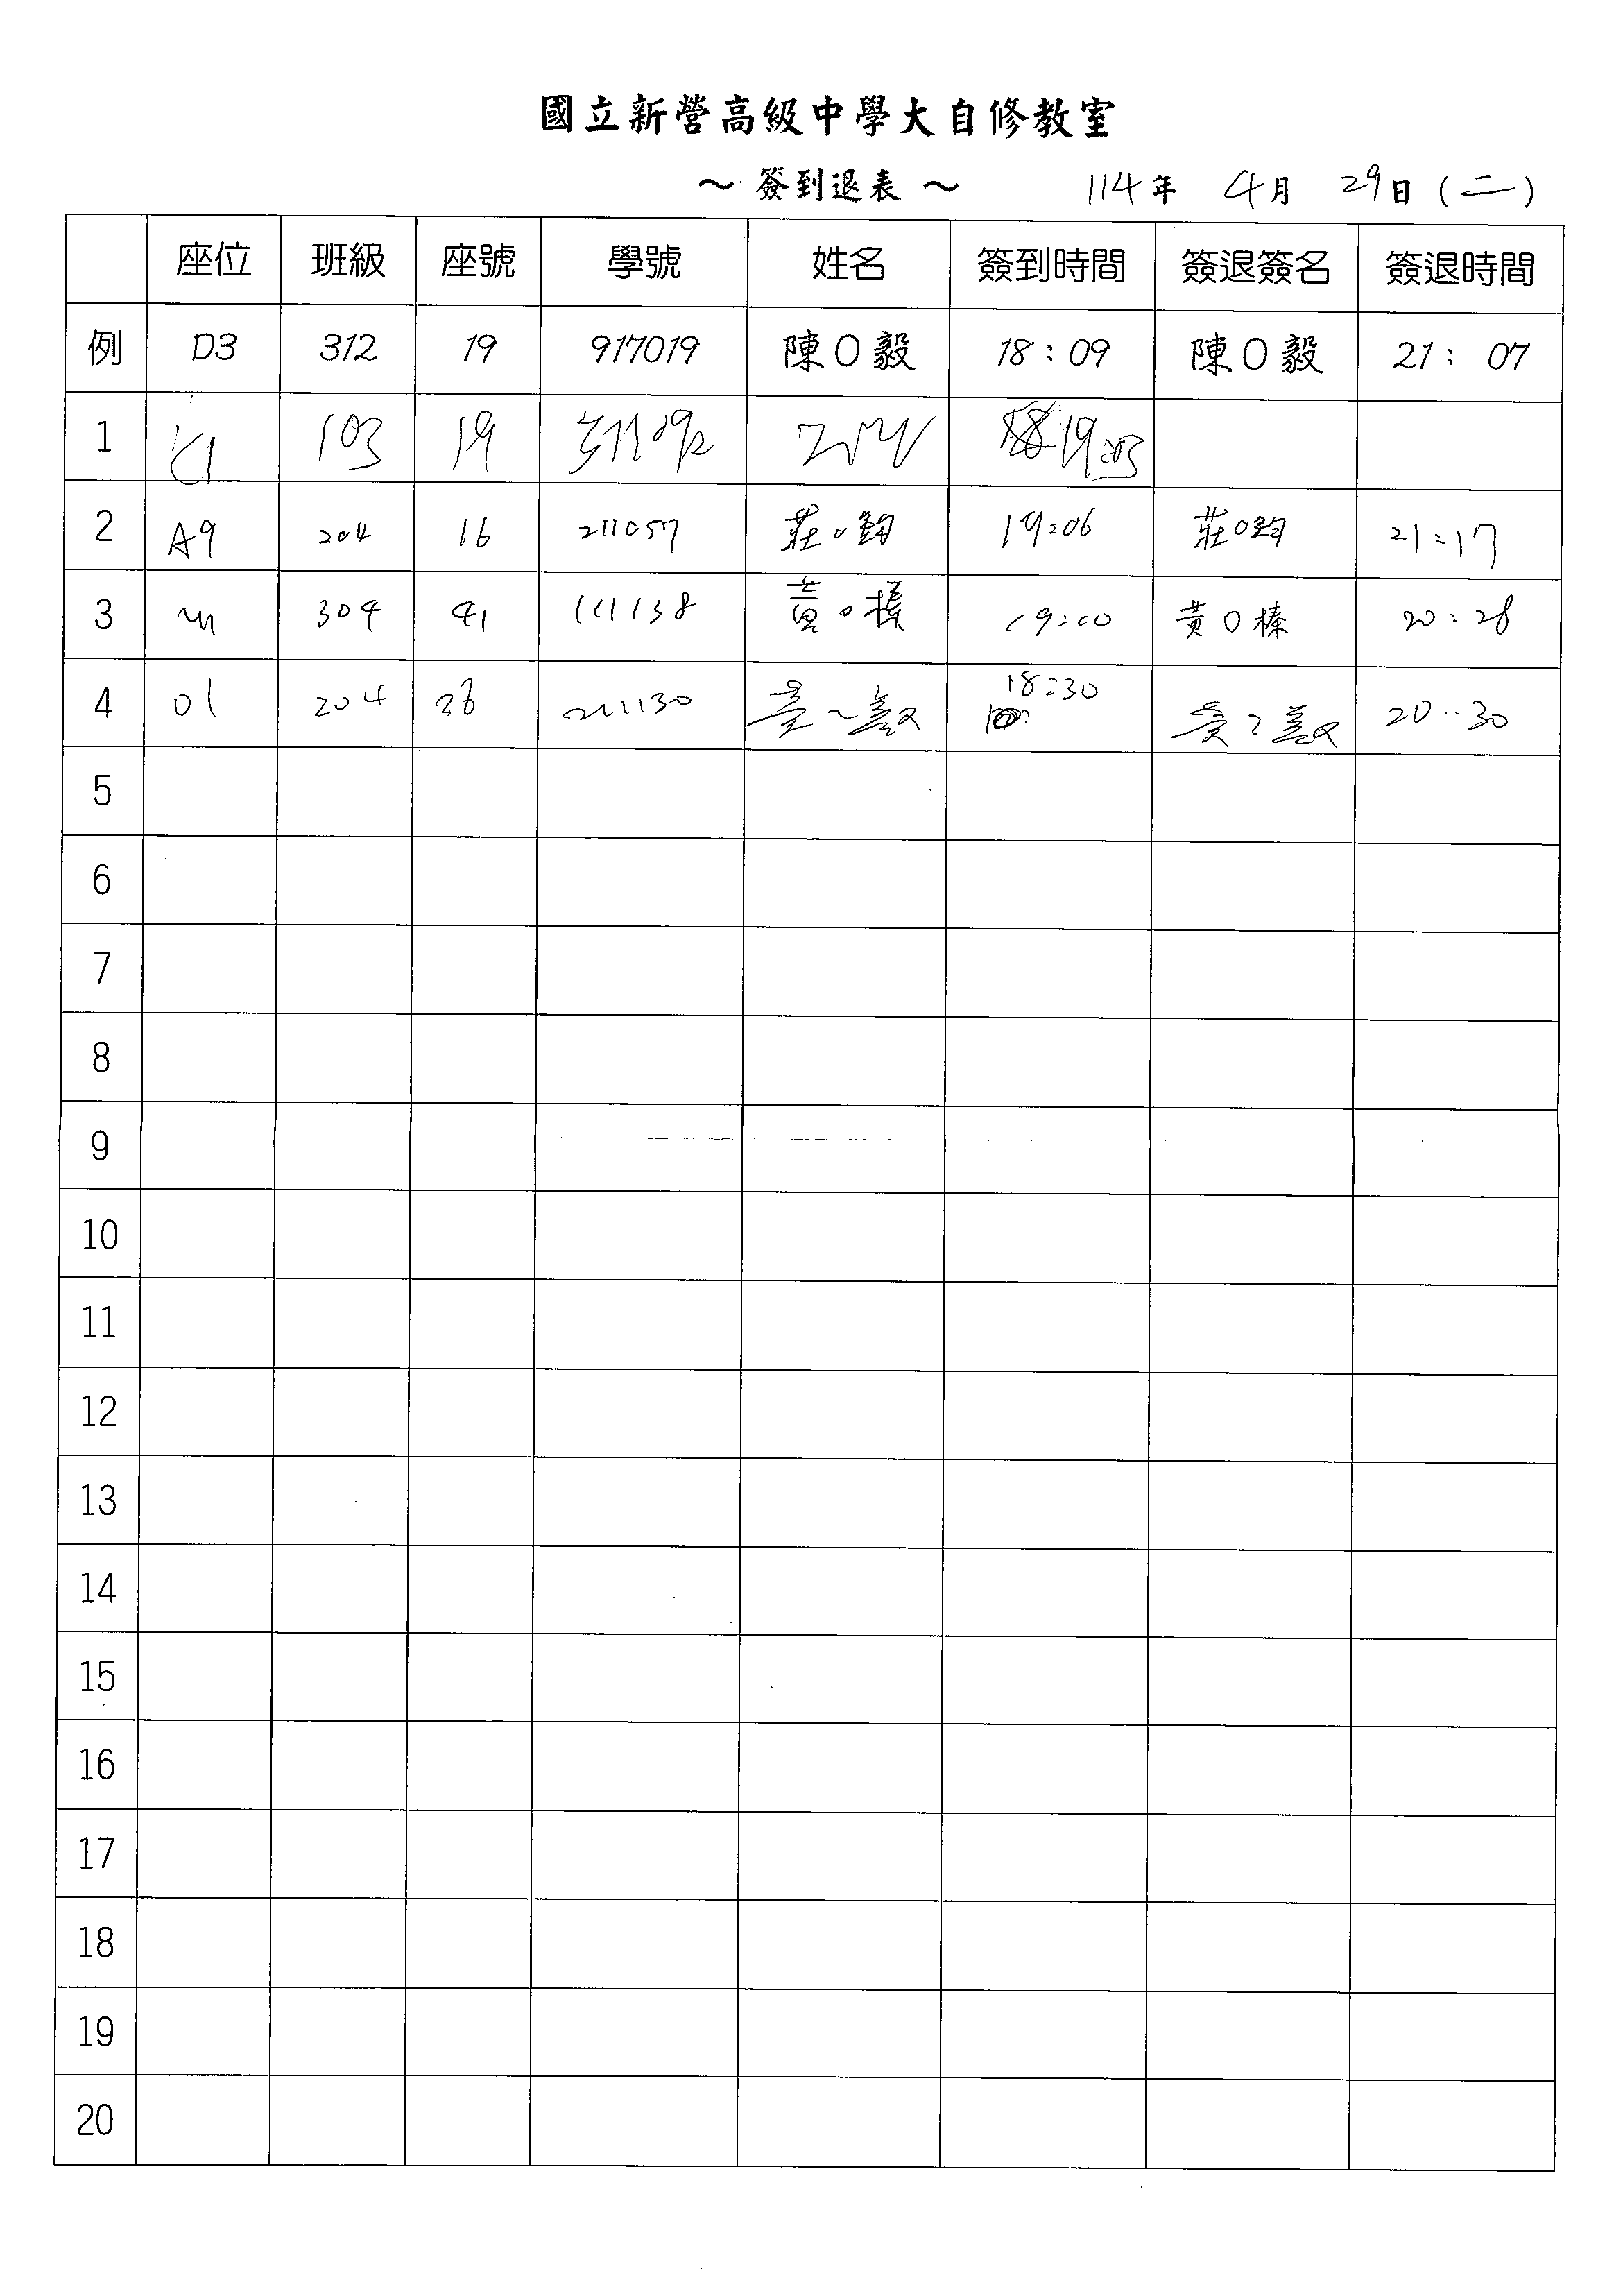 國立新營高級中學大自修教室
～ 簽到退表 ～ 114年 4月 29日(二)
座位 班級 座號 學號 姓名 簽到時間 簽退簽名 簽退時間
例 D3 312 19 917019 陳O毅 18:09 陳O毅 21:07
1 C1 103 19 19:03
2 A9 204 16 211057 莊O鈞 19:06 莊O鈞 21:17
3 304 41 111138 黃O榛 19:00 黃O榛 20:28
4 01 204 26 211130 18:30 20:30
5
6
7
8
9
10
11
12
13
14
15
16
17
18
19
20